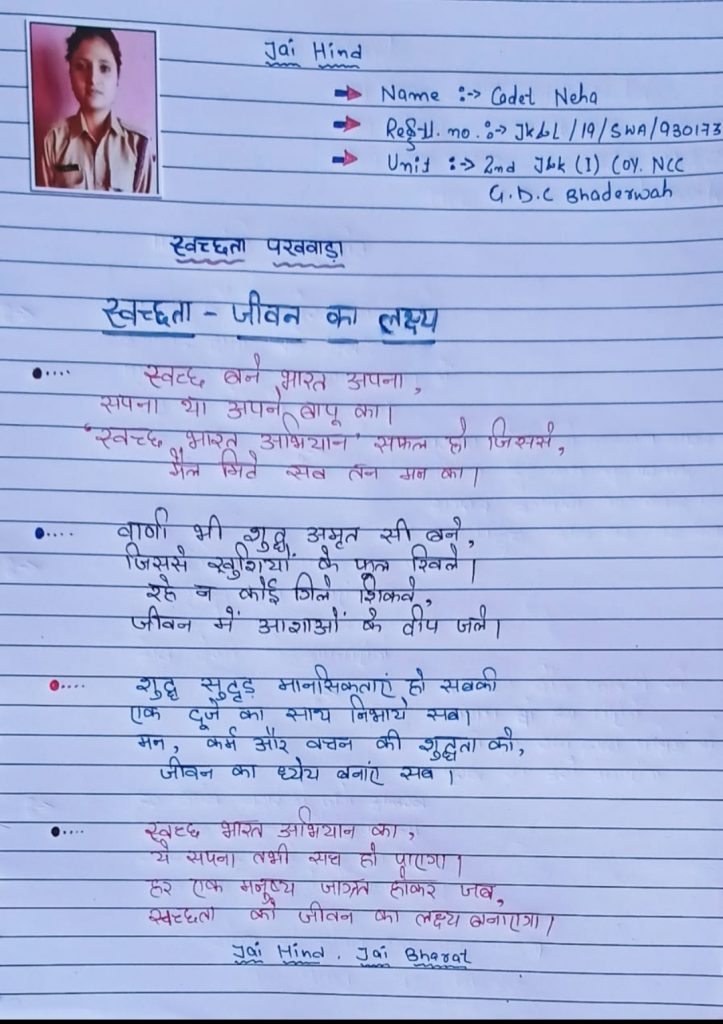 Jai Hind
Name :-> Cadet Neha
Regtl. no. :-> Jk&L/19/SWA/930173
Unit :-> 2nd J&k (I) COY. NCC
G.D.C Bhaderwah
स्वच्छता पखवाड़ा
स्वच्छता - जीवन का लक्ष्य
स्वच्छ बने भारत अपना,
सपना था अपने बापू का।
'स्वच्छ भारत अभियान' सफल हो जिससे,
मैल मिटे सब तन मन का।
वाणी भी शुद्ध अमृत सी बने,
जिससे खुशियों के फूल खिले।
रहे न कोई गिले शिकवे,
जीवन में आशाओं के दीप जले।
शुद्ध सुदृढ़ मानसिकताएं हो सबकी
एक दूजे का साथ निभाये सब।
मन, कर्म और वचन की शुद्धता को,
जीवन का ध्येय बनाएं सब।
स्वच्छ भारत अभियान का,
ये सपना तभी सच हो पाएगा।
हर एक मनुष्य जाग्रत होकर जब,
स्वच्छता को जीवन का लक्ष्य बनाएगा।
Jai Hind. Jai Bharat